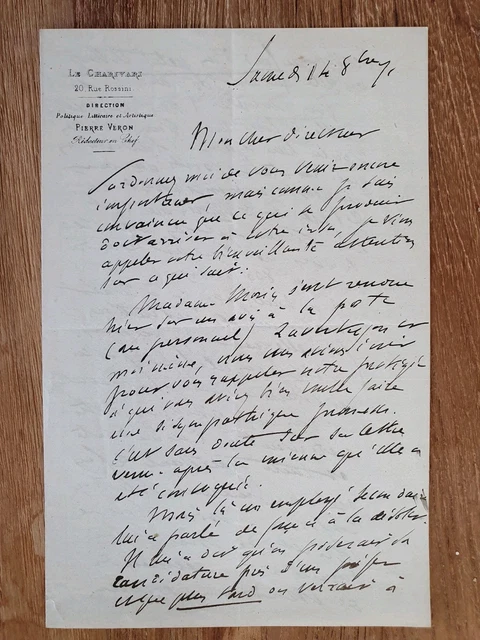 LE CHARIVARI
20 Rue Rossini
DIRECTION
Politique Littéraire et Artistique
PIERRE VERON
Rédacteur en Chef
Samedi 14 8bre
Mon cher directeur
Pardonnez moi de vous venir encore
importuner, mais comme je suis
convaincu que ce qui se produit
doit arriver à votre insu, je viens
appeler votre bienveillante attention
sur ce qui suit.
Madame Morin s'est rendue
hier sur un avis à la poste
(au personnel)
moi même, nous vous avions écrit
pour vous rappeler notre protégée
à qui vous aviez bien voulu faire
une si sympathique promesse.
C'est sans doute sur sa lettre
venue après la mienne qu'elle a
été convoquée.
Mais là un employé secondaire
lui a parlé de façon à la
Il lui a dit qu'on
candidature
que plus tard on verrait à